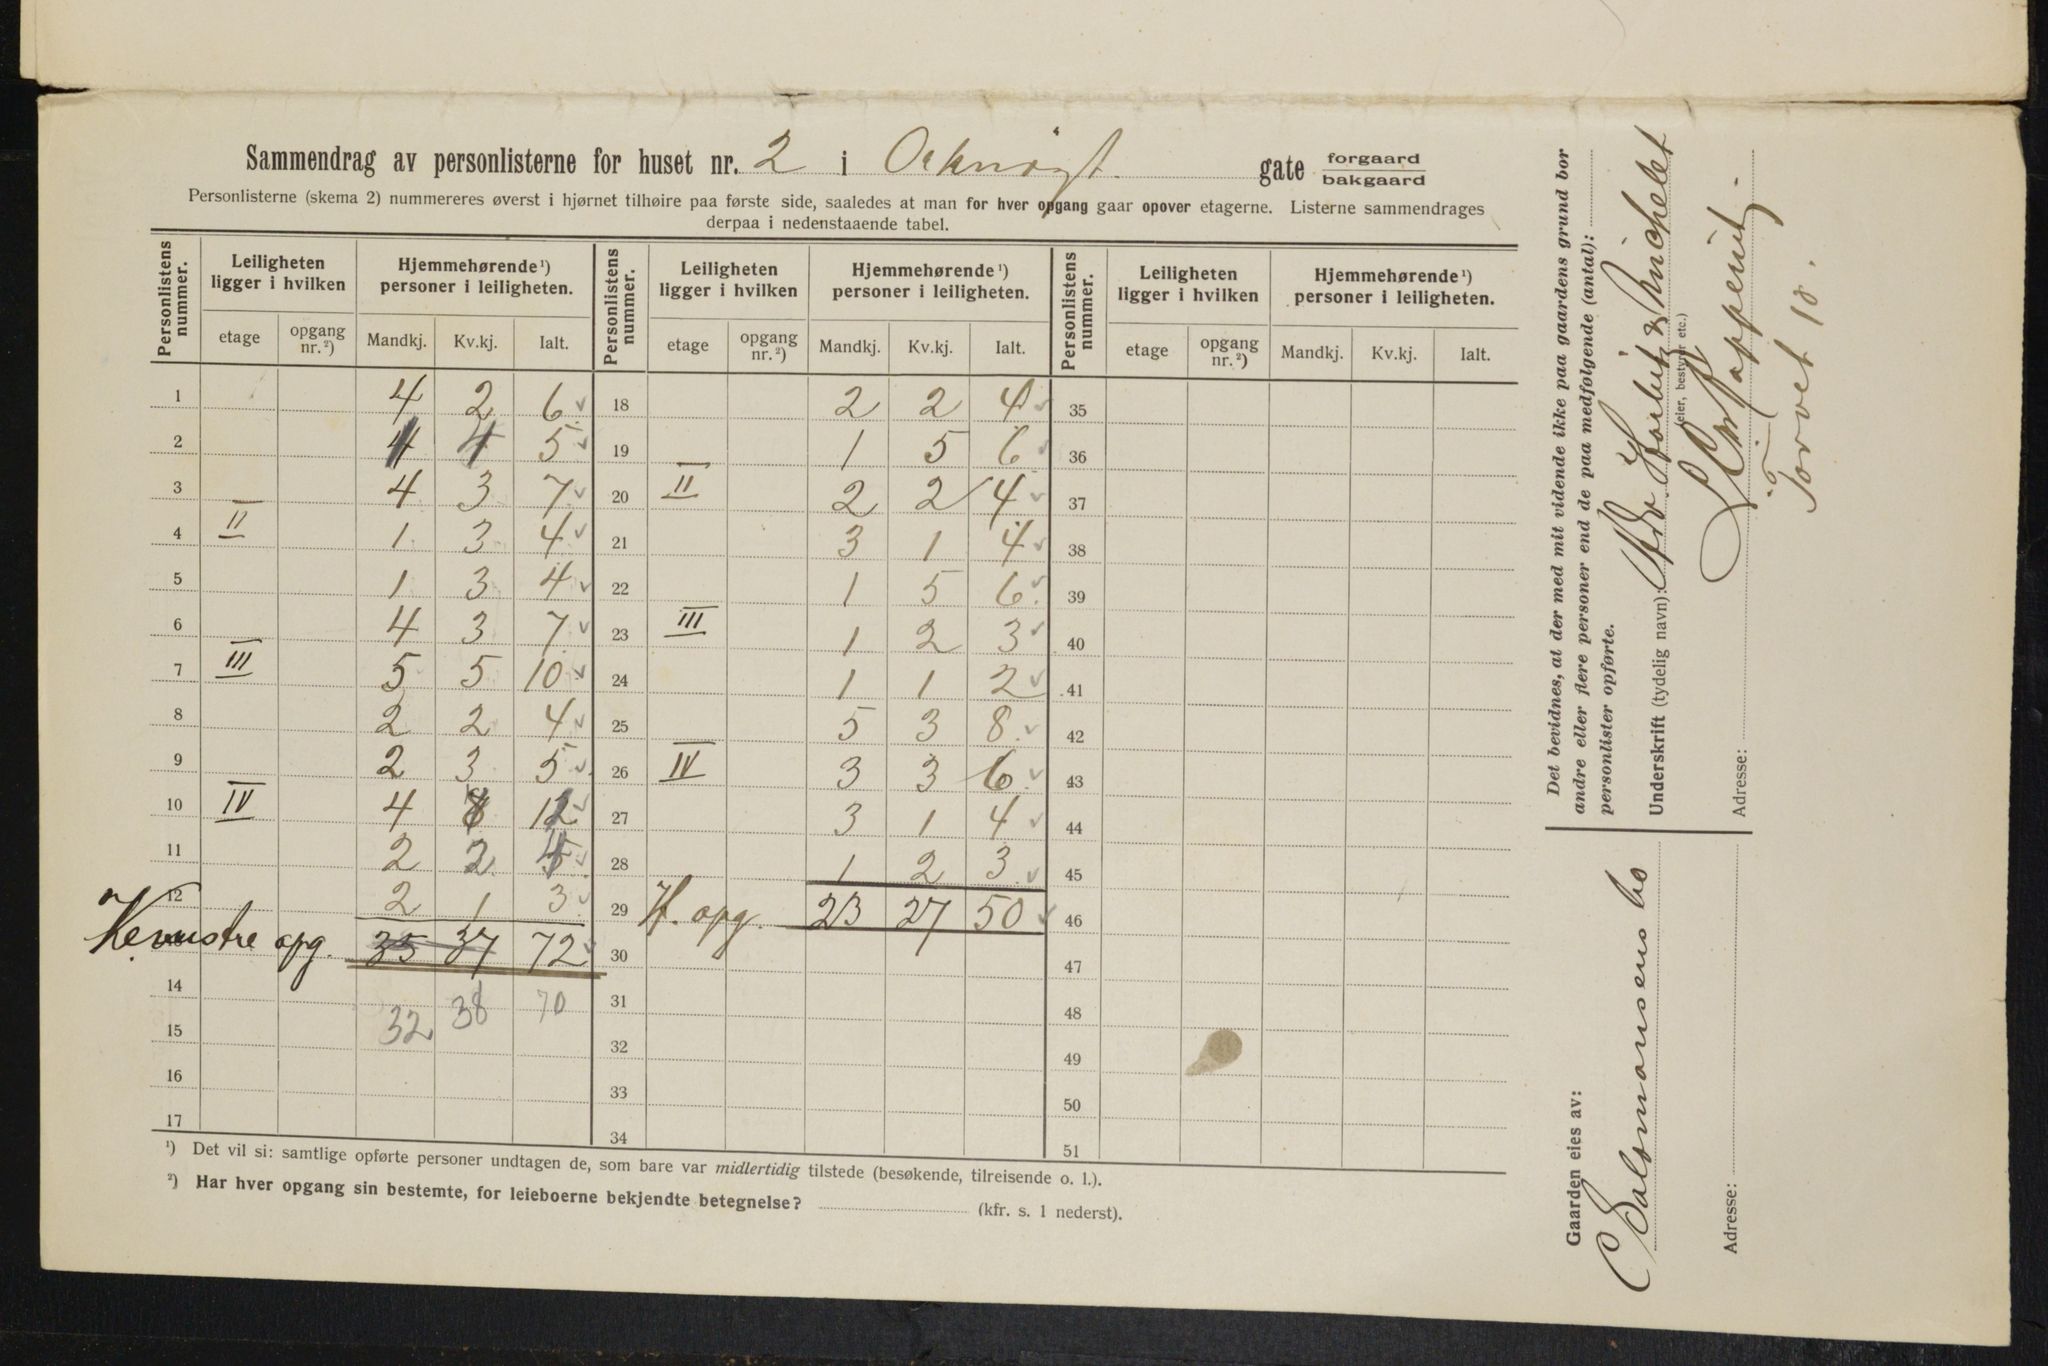 Sammendrag av personlisterne for huset nr. 2 i Orknøgt. gate forgaard bakgaard
Personlisterne (skema 2) nummereres øverst i hjørnet tilhøire paa første side, saaledes at man for hver opgang gaar opover etagerne. Listerne sammendrages
derpaa i nedenstaaende tabel.
Personlistens nummer. Leiligheten ligger i hvilken Hjemmehørende ¹) personer i leiligheten. Personlistens nummer. Leiligheten ligger i hvilken Hjemmehørende ¹) personer i leiligheten. Personlistens nummer. Leiligheten ligger i hvilken Hjemmehørende ¹) personer i leiligheten.
etage opgang nr. ²) Mandkj. Kv.kj. Ialt. etage opgang nr. ²) Mandkj. Kv.kj. Ialt. etage opgang nr. ²) Mandkj. Kv.kj. Ialt.
1 4 2 6 18 2 2 4 35
2 1 4 5 19 1 5 6 36
3 4 3 7 20 II 2 2 4 37
4 II 1 3 4 21 3 1 4 38
5 1 3 4 22 1 5 6 39
6 4 3 7 23 III 1 2 3 40
7 III 5 5 10 24 1 1 2 41
8 2 2 4 25 5 3 8 42
9 2 3 5 26 IV 3 3 6 43
10 IV 4 12 27 3 1 4 44
11 2 2 28 1 2 3 45
12 2 1 3 29 H. opg. 23 27 50 46
Venstre opg. 35 37 72 30 47
14 32 38 70 31 48
15 32 49
16 33 50
17 34 51
¹) Det vil si: samtlige opførte personer undtagen de, som bare var midlertidig tilstede (besøkende, tilreisende o. l.).
²) Har hver opgang sin bestemte, for leieboerne bekjendte betegnelse? (kfr. s. 1 nederst).
Det bevidnes, at der med mit vidende ikke paa gaardens grund bor
andre eller flere personer end de paa medfølgende (antal):
personlister opførte.
Underskrift (tydelig navn): Michelet
(eier, bestyrer etc.)
Adresse:
Torvet 10.
Gaarden eies av:
Salomonsens bo
Adresse: